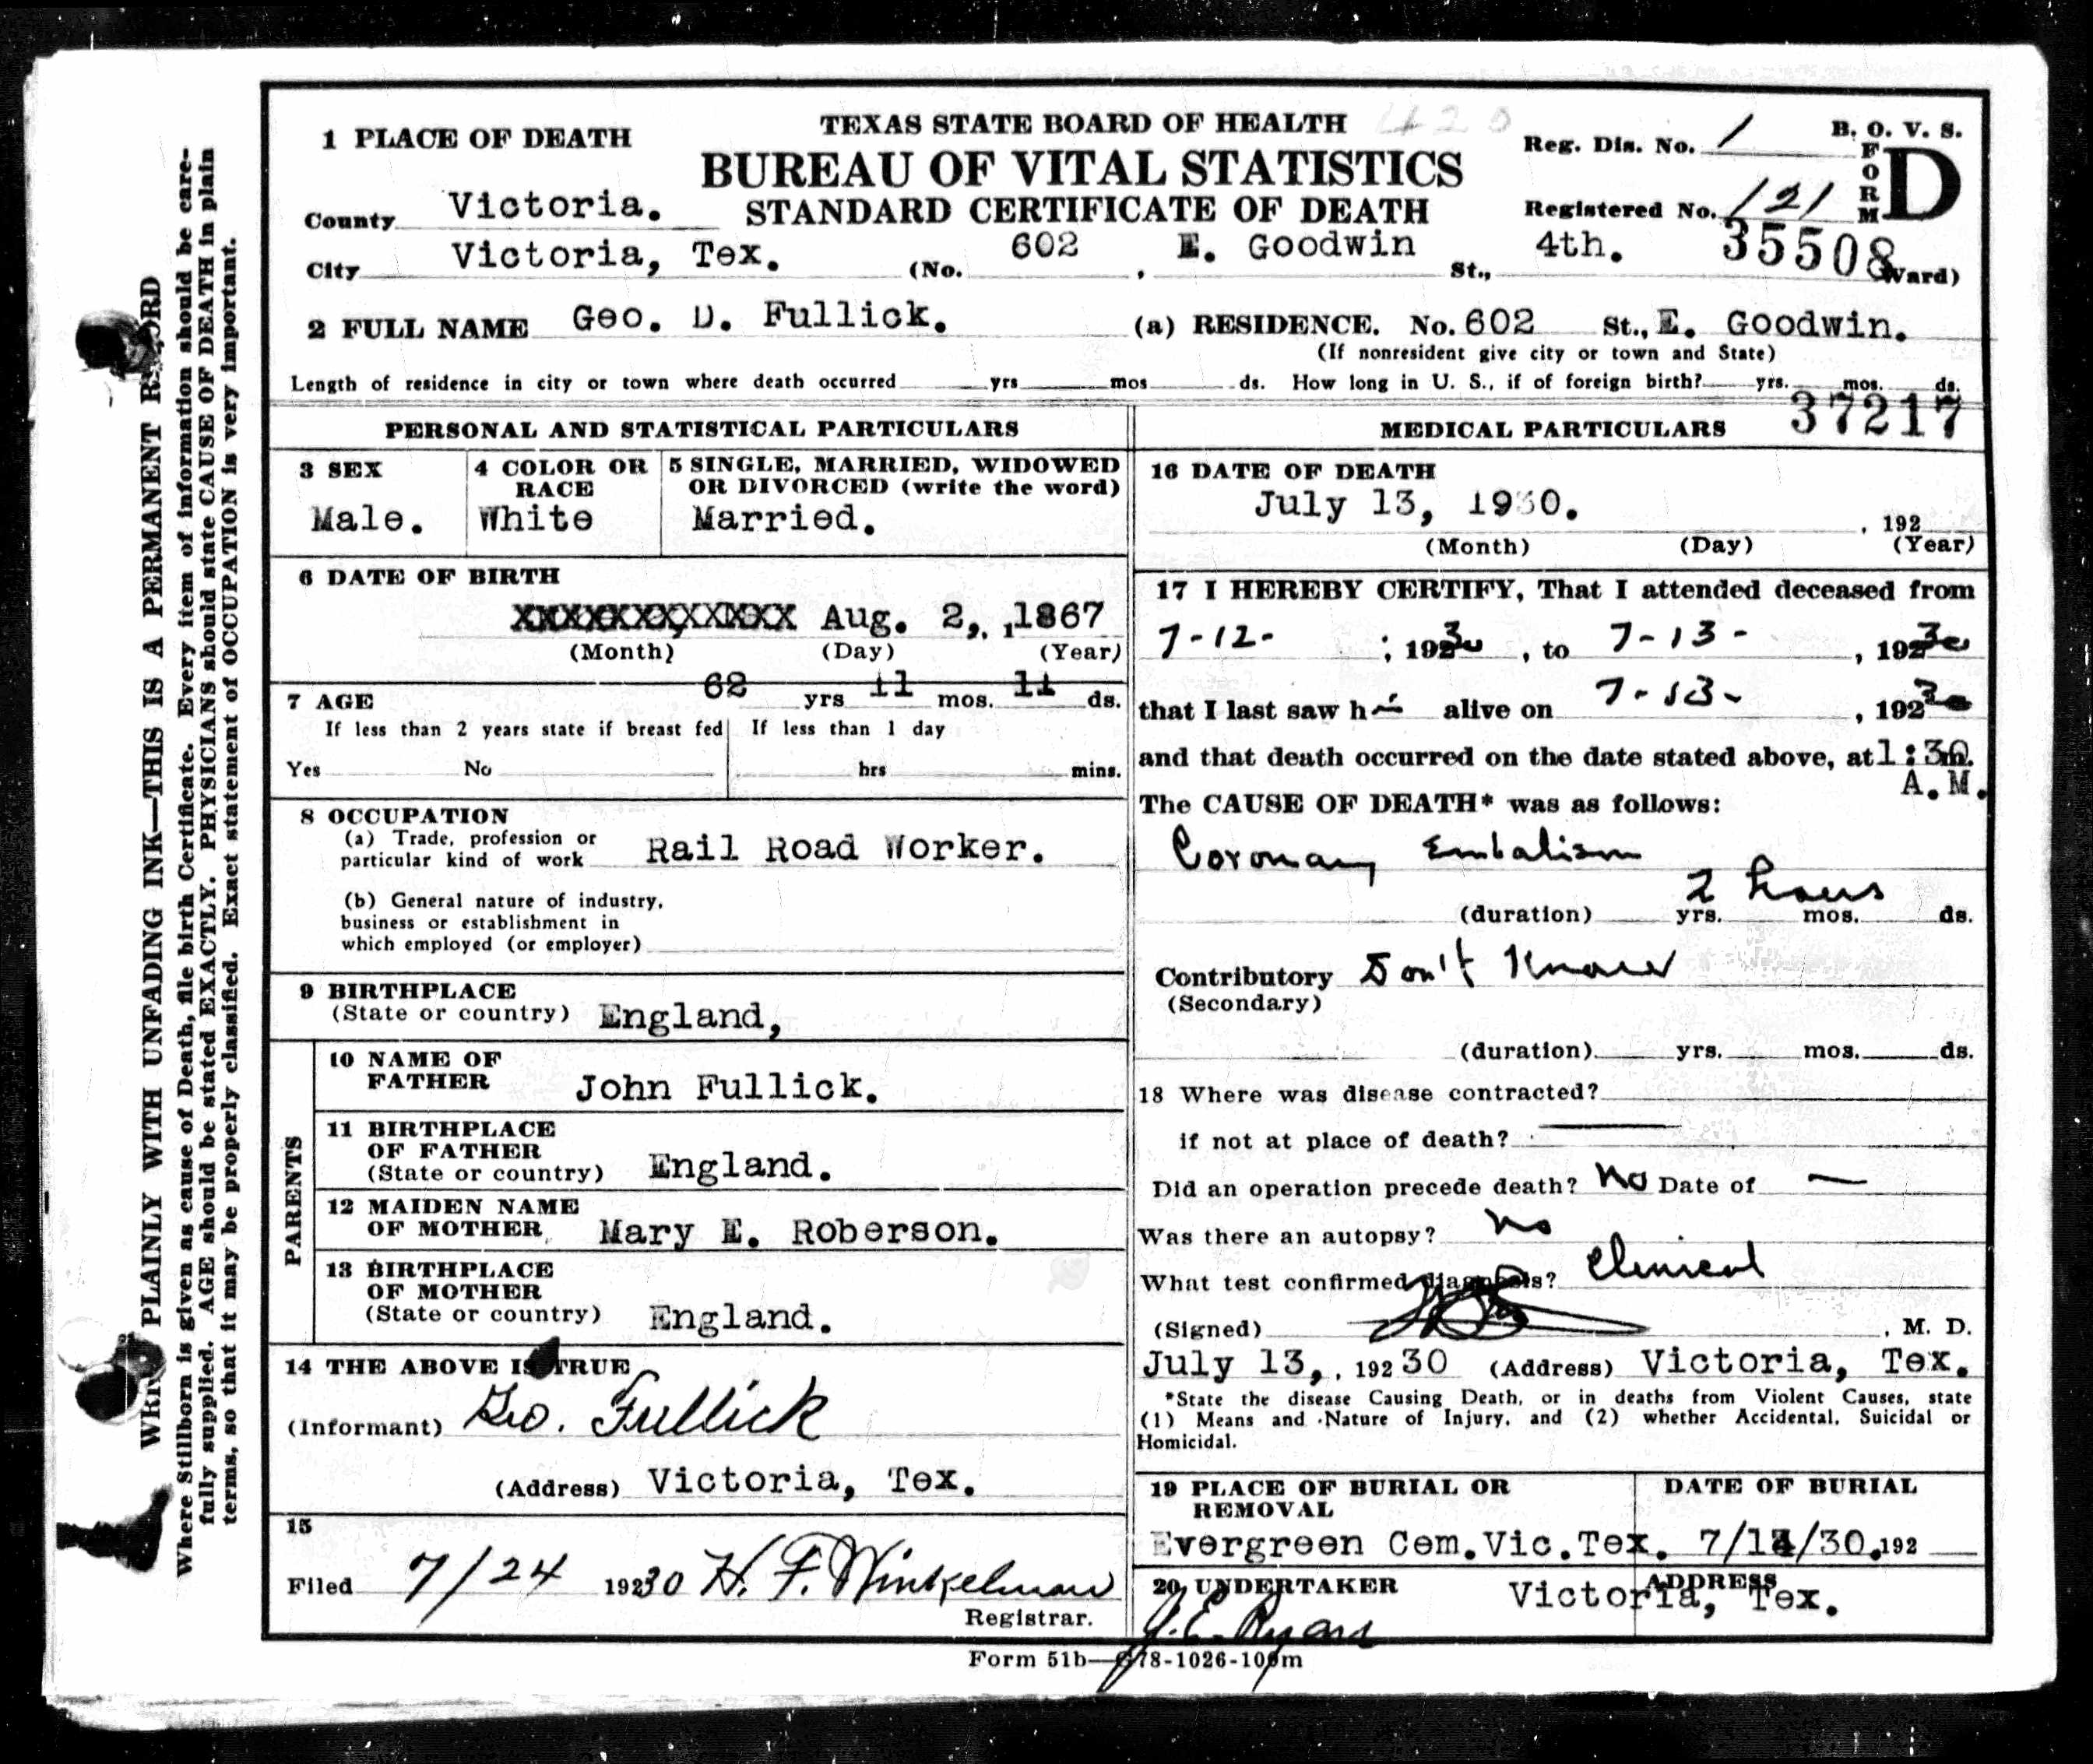 WRITE PLAINLY WITH UNFADING INK—THIS IS A PERMANENT RECORD
Where Stillborn is given as cause of Death, file birth Certificate. Every item of information should be care-
fully supplied. AGE should be stated EXACTLY. PHYSICIANS should state CAUSE OF DEATH in plain
terms, so that it may be properly classified. Exact statement of OCCUPATION is very important.
TEXAS STATE BOARD OF HEALTH 420
BUREAU OF VITAL STATISTICS
STANDARD CERTIFICATE OF DEATH
Reg. Dis. No. 1
B. O. V. S.
FORM D
Registered No. 121
35508
1 PLACE OF DEATH
County Victoria.
City Victoria, Tex. (No. 602, E. Goodwin St., 4th. Ward)
2 FULL NAME Geo. D. Fullick. (a) RESIDENCE. No. 602 St., E. Goodwin.
(If nonresident give city or town and State)
Length of residence in city or town where death occurred yrs mos ds. How long in U. S., if of foreign birth? yrs. mos. ds.
37217
PERSONAL AND STATISTICAL PARTICULARS
3 SEX
Male.
4 COLOR OR RACE
White
5 SINGLE, MARRIED, WIDOWED
OR DIVORCED (write the word)
Married.
6 DATE OF BIRTH
Aug. 2, 1867
(Month) (Day) (Year)
7 AGE 62 yrs 11 mos. 11 ds.
If less than 2 years state if breast fed
Yes No
If less than 1 day
hrs mins.
8 OCCUPATION
(a) Trade, profession or
particular kind of work Rail Road Worker.
(b) General nature of industry,
business or establishment in
which employed (or employer)
9 BIRTHPLACE
(State or country) England,
PARENTS
10 NAME OF
FATHER John Fullick.
11 BIRTHPLACE
OF FATHER
(State or country) England.
12 MAIDEN NAME
OF MOTHER Mary E. Roberson.
13 BIRTHPLACE
OF MOTHER
(State or country) England.
14 THE ABOVE IS TRUE
(Informant) Geo. Fullick
(Address) Victoria, Tex.
15
Filed 7/24 192 30 H. F. Winkelman
Registrar.
MEDICAL PARTICULARS
16 DATE OF DEATH
July 13, 1930. , 192
(Month) (Day) (Year)
17 I HEREBY CERTIFY, That I attended deceased from
7-12- ; 1930, to 7-13-, 1930
that I last saw him alive on 7-13-, 1930
and that death occurred on the date stated above, at 1:30 m.
A.M.
The CAUSE OF DEATH* was as follows:
Coronary Embolism
2 hours
(duration) yrs. mos. ds.
Contributory Don't Know
(Secondary)
(duration) yrs. mos. ds.
18 Where was disease contracted?
if not at place of death?
Did an operation precede death? No Date of —
Was there an autopsy? no
What test confirmed diagnosis? Clinical
(Signed) , M. D.
July 13, , 192 30 (Address) Victoria, Tex.
*State the disease Causing Death, or in deaths from Violent Causes, state
(1) Means and Nature of Injury, and (2) whether Accidental, Suicidal or
Homicidal.
19 PLACE OF BURIAL OR
REMOVAL
Evergreen Cem.Vic.Tex.
DATE OF BURIAL
7/14/30. 192
20 UNDERTAKER
J. E. Ryan
ADDRESS
Victoria, Tex.
Form 51b—G78-1026-100m